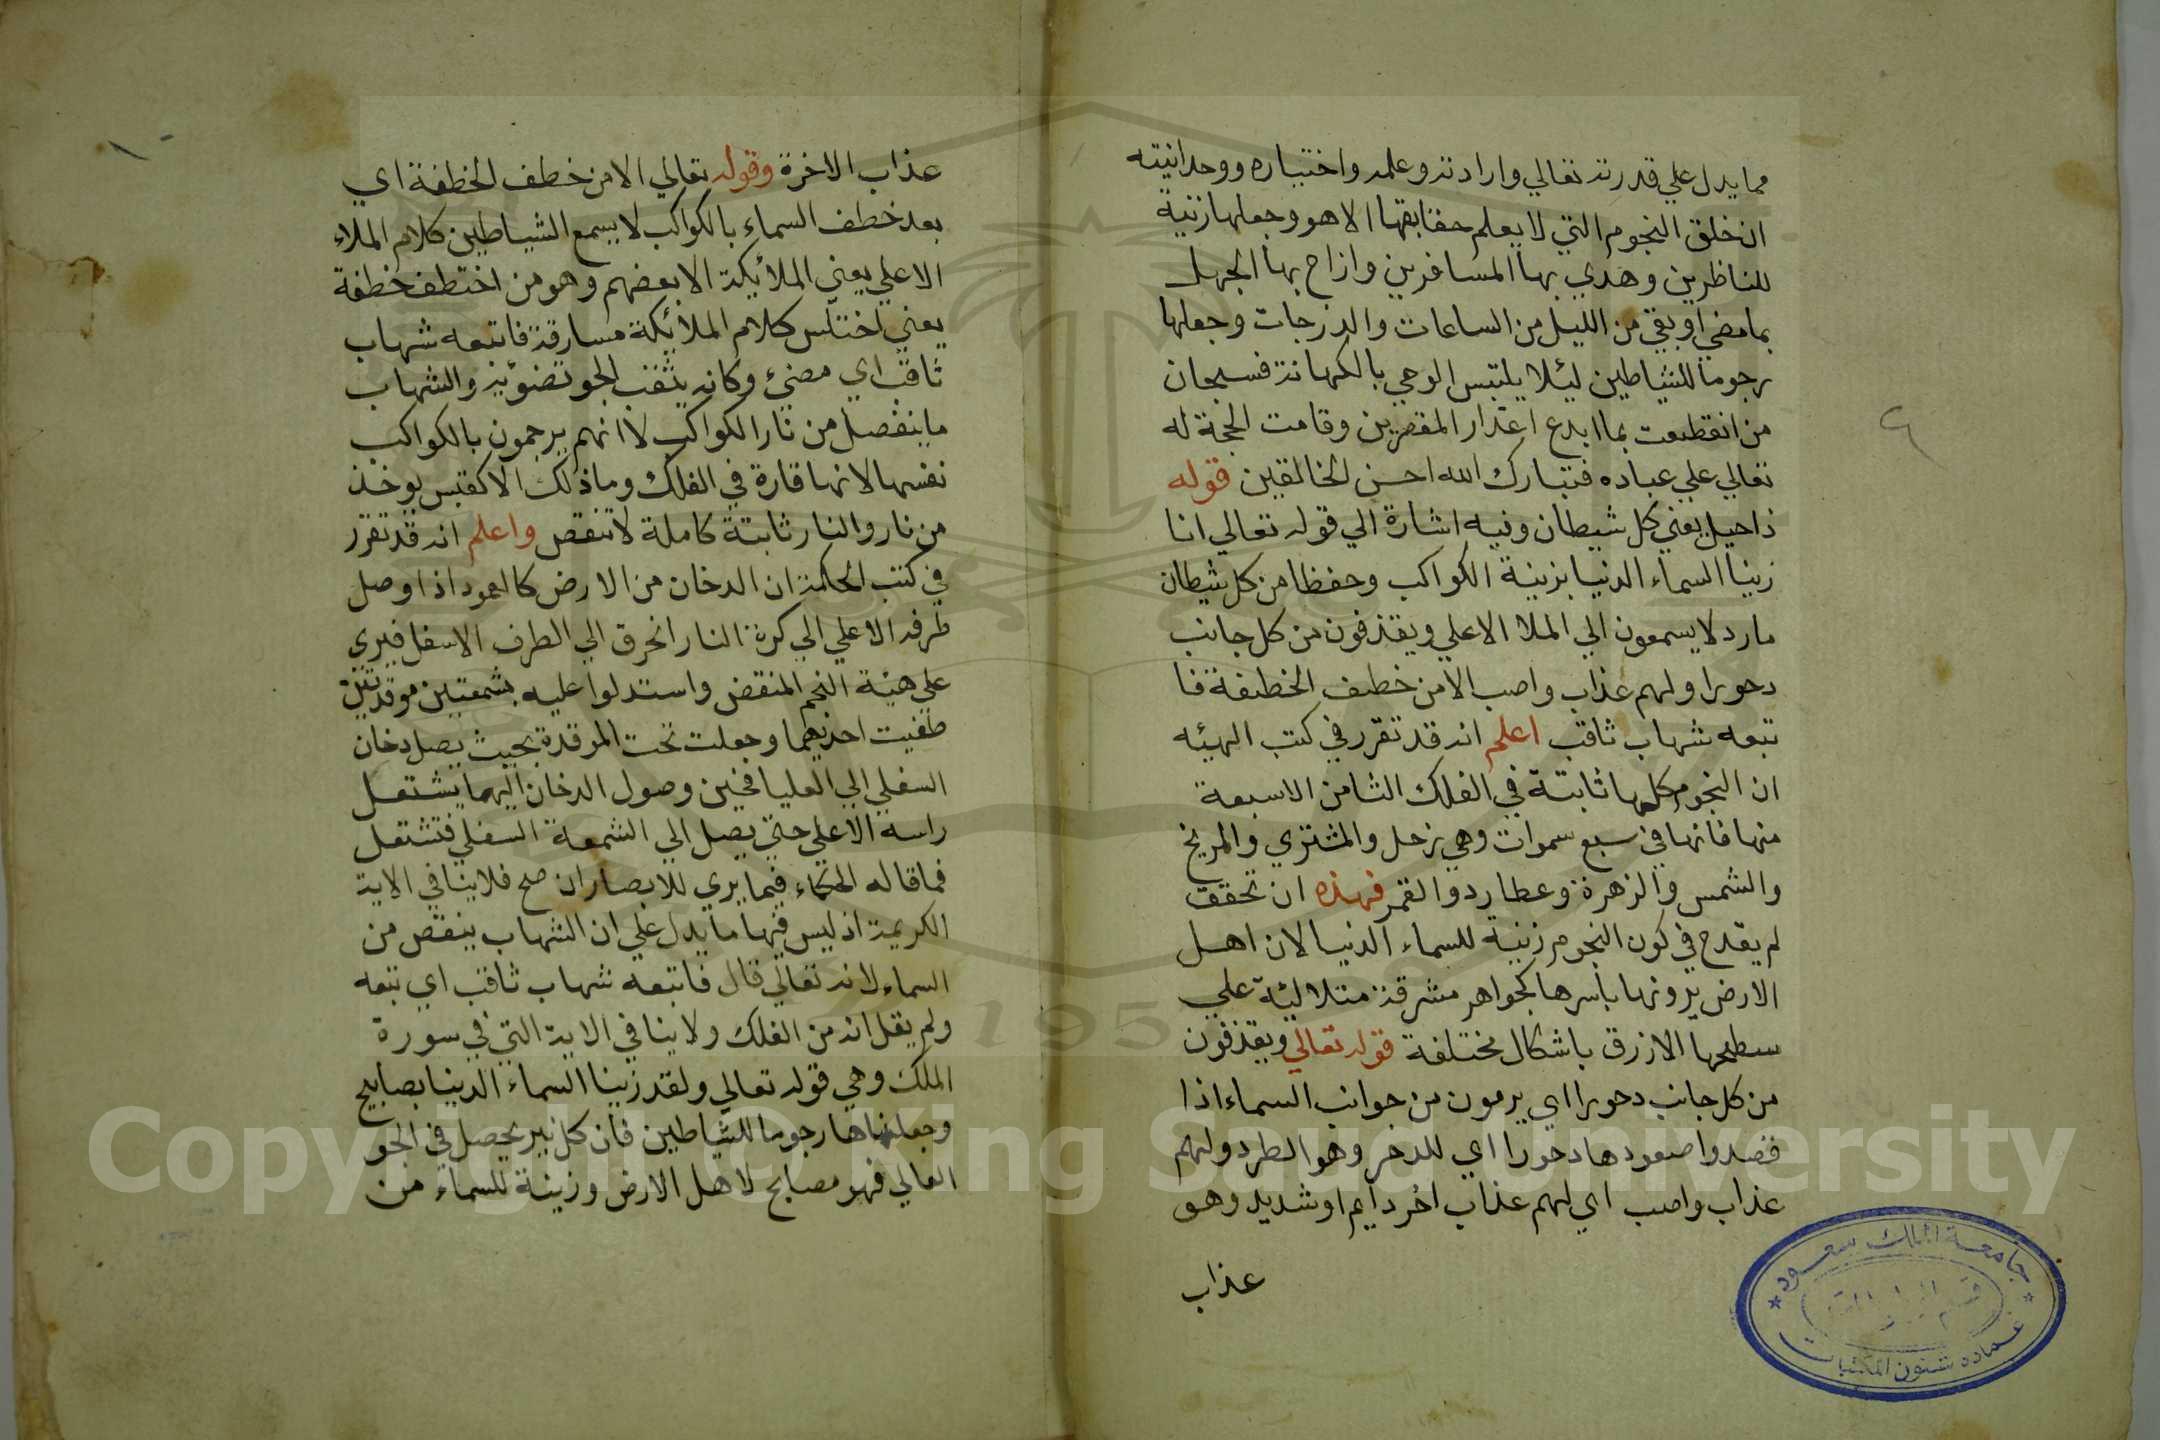 مما يدل علي قدرته تعالي وارادته وعلمه واختياره ووحدانيته
ان خلق النجوم التي لا يعلم حقايقها الا هو وجعلها زينة
للناظرين وهدي بها المسافرين وازاح بها الجهل
بما مضي او بقي من الليل من الساعات والدرجات وجعلها
رجوما للشياطين ليئلا يلتبس الوحي بالكهانة فسبحان
من انقطعت بما ابدع اعذار المقصرين وقامت الحجة له
تعالي علي عباده فتبارك الله احسن الخالقين قوله
ذا حيل يعني كل شيطان وفيه اشارة الي قوله تعالي انا
زينا السماء الدنيا بزينة الكواكب وحفظا من كل شيطان
مارد لا يسمعون الي الملا الاعلي ويقذفون من كل جانب
دحورا ولهم عذاب واصب الا من خطف الخطفة فا
تبعه شهاب ثاقب اعلم انه قد تقرر في كتب الهيئه
ان النجوم كلها ثابتة في الفلك الثامن الا سبعة
منها فانها في سبع سموات وهي زحل والمشتري والمريخ
والشمس والزهرة وعطارد والقمر فهذه ان تحقق
لم يقدح في كون النجوم زينة للسماء الدنيا لان اهل
الارض يرونها باسرها كجواهر مشرقة متلالئة علي
سطحها الازرق باشكال مختلفة قوله تعالي ويقذفون
من كل جانب دحورا اي يرمون من جوانب السماء اذا
قصدوا صعودها دحورا اي للدحر وهو الطرد ولهم
عذاب واصب اي لهم عذاب اخر دايم او شديد وهو
عذاب
عذاب الاخرة وقوله تعالي الا من خطف الخطفة اي
بعد خطف السماء بالكواكب لا يسمع الشياطين كلام الملاء
الاعلي يعني الملائيكة الا بعضهم وهو من اختطف خطفة
يعني اختلس كلام الملائيكة مسارقة فاتبعه شهاب
ثاقب اي مضيئ وكانه يثقب الجو بضوئيه والشهاب
ما ينفصل من نار الكواكب لا انهم يرجمون بالكواكب
نفسها لانها قارة في الفلك وما ذلك الا كقبس يوخذ
من نار والنار ثابتة كاملة لا تنقص واعلم انه قد تقرر
في كتب الحكمة ان الدخان من الارض كالعمود اذا وصل
طرفه الاعلي الي كرة النار انحرق الي الطرف الاسفل فيري
علي هيئة النجم المنقض واستدلوا عليه بشمعتين موقدتين
طفيت احديهما وجعلت تحت الموقدة بحيث يصل دخان
السفلي الي العليا فحين وصول الدخان اليهما يشتعل
راسه الاعلي حتي يصل الي الشمعة السفلي فتشتعل
فما قاله الحكماء فيما يري للابصار ان صح فلا ينافي الاية
الكريمة اذ ليس فيها ما يدل علي ان الشهاب ينقض من
السماء لانه تعالي قال فاتبعه شهاب ثاقب اي تبعه
ولم يقل انه من الفلك ولا ينافي الاية التي في سورة
الملك وهي قوله تعالي ولقد زينا السماء الدنيا بمصابيح
وجعلناها رجوما للشياطين فان كل نير يحصل في الجو
العالي فهو مصابح لاهل الارض وزينة للسماء من
جامعة الملك سعود
عمادة شئون المكتبات
Copyright © King Saud University
195